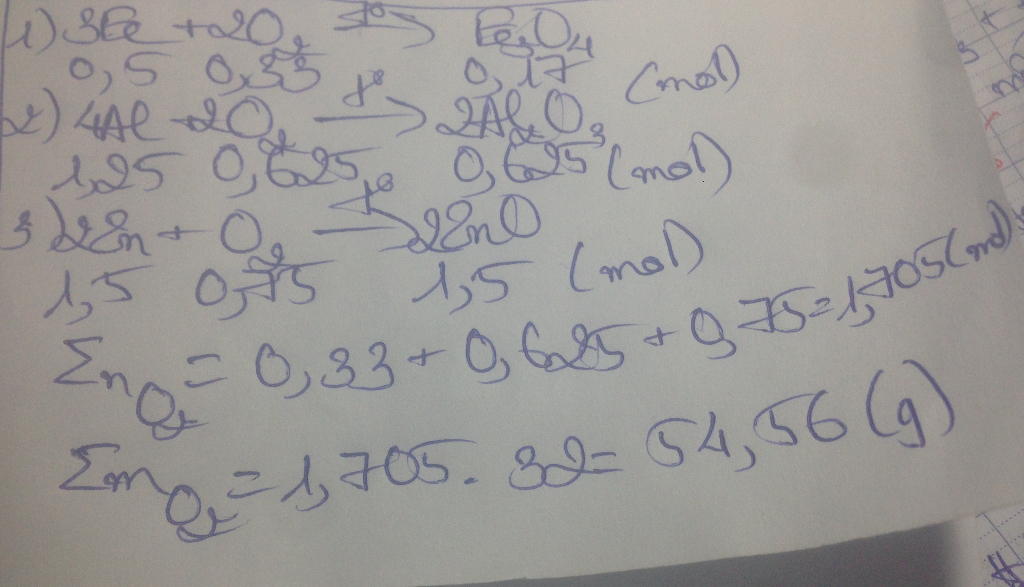 1) 3Fe + 2O₂ —t°→ Fe₃O₄
0,5 0,33 0,17 (mol)
2) 4Al + 2O₂ —t°→ 2Al₂O₃
1,25 0,625 0,625 (mol)
3) 2Zn + O₂ —t°→ 2ZnO
1,5 0,75 1,5 (mol)
Σn O₂ = 0,33 + 0,625 + 0,75 = 1,705 (mol)
Σm O₂ = 1,705 . 32 = 54,56 (g)